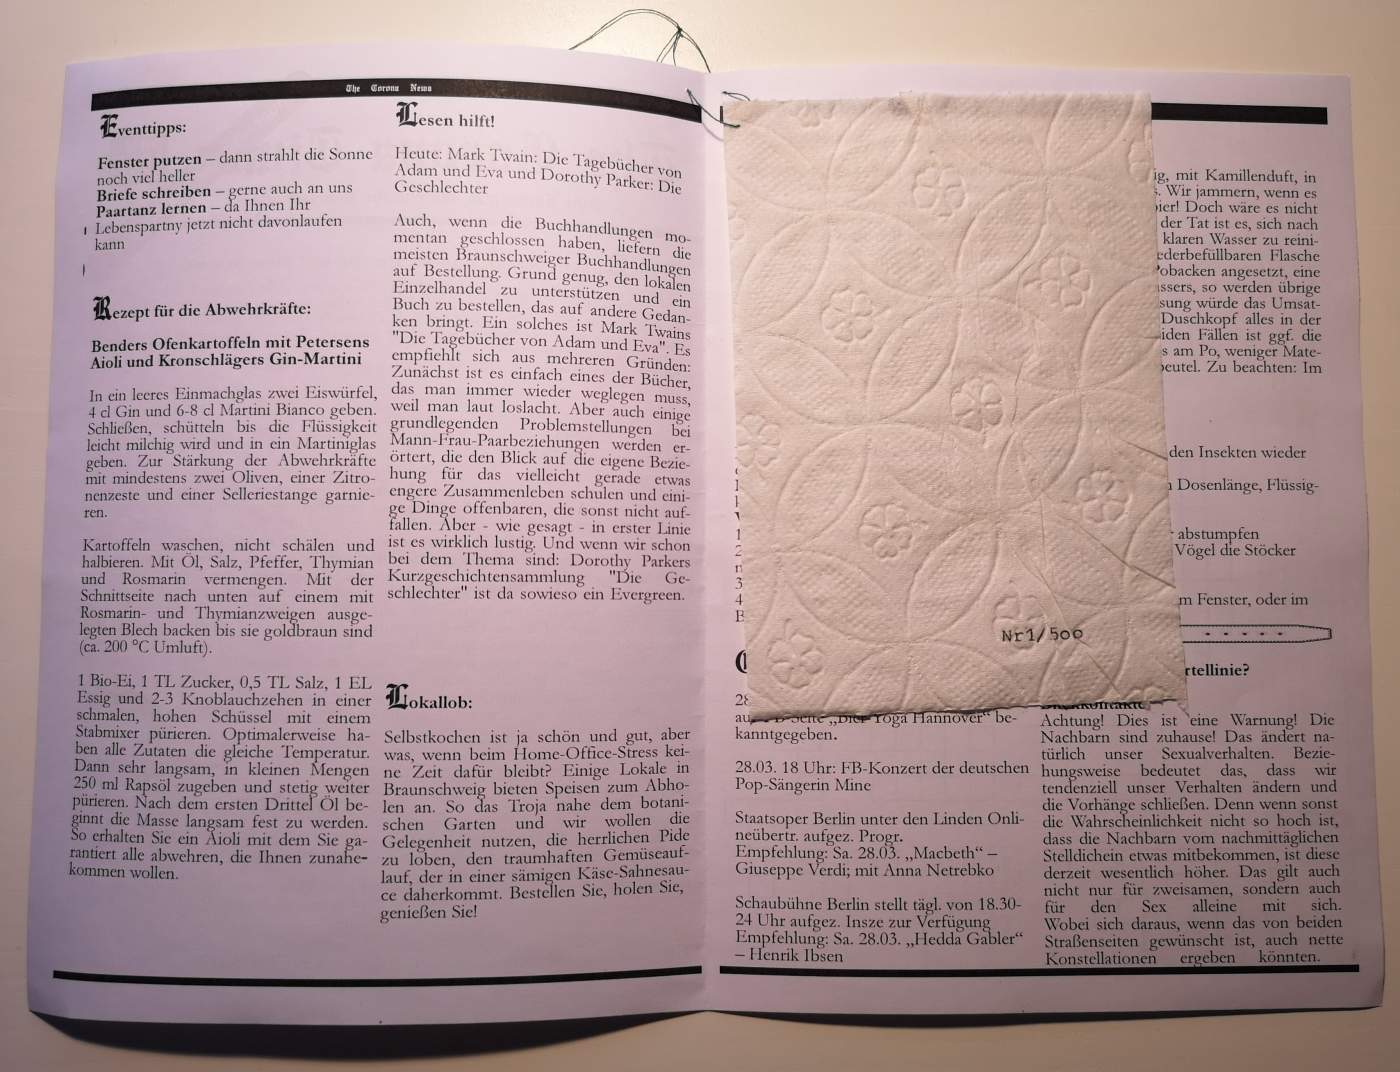 The Corona News
Eventtipps:
Fenster putzen – dann strahlt die Sonne
noch viel heller
Briefe schreiben – gerne auch an uns
Paartanz lernen – da Ihnen Ihr
Lebenspartny jetzt nicht davonlaufen
kann
Rezept für die Abwehrkräfte:
Benders Ofenkartoffeln mit Petersens
Aioli und Kronschlägers Gin-Martini
In ein leeres Einmachglas zwei Eiswürfel,
4 cl Gin und 6-8 cl Martini Bianco geben.
Schließen, schütteln bis die Flüssigkeit
leicht milchig wird und in ein Martiniglas
geben. Zur Stärkung der Abwehrkräfte
mit mindestens zwei Oliven, einer Zitro-
nenzeste und einer Selleriestange garnie-
ren.
Kartoffeln waschen, nicht schälen und
halbieren. Mit Öl, Salz, Pfeffer, Thymian
und Rosmarin vermengen. Mit der
Schnittseite nach unten auf einem mit
Rosmarin- und Thymianzweigen ausge-
legten Blech backen bis sie goldbraun sind
(ca. 200 °C Umluft).
1 Bio-Ei, 1 TL Zucker, 0,5 TL Salz, 1 EL
Essig und 2-3 Knoblauchzehen in einer
schmalen, hohen Schüssel mit einem
Stabmixer pürieren. Optimalerweise ha-
ben alle Zutaten die gleiche Temperatur.
Dann sehr langsam, in kleinen Mengen
250 ml Rapsöl zugeben und stetig weiter
pürieren. Nach dem ersten Drittel Öl be-
ginnt die Masse langsam fest zu werden.
So erhalten Sie ein Aioli mit dem Sie ga-
rantiert alle abwehren, die Ihnen zunahe-
kommen wollen.
Lesen hilft!
Heute: Mark Twain: Die Tagebücher von
Adam und Eva und Dorothy Parker: Die
Geschlechter
Auch, wenn die Buchhandlungen mo-
mentan geschlossen haben, liefern die
meisten Braunschweiger Buchhandlungen
auf Bestellung. Grund genug, den lokalen
Einzelhandel zu unterstützen und ein
Buch zu bestellen, das auf andere Gedan-
ken bringt. Ein solches ist Mark Twains
"Die Tagebücher von Adam und Eva". Es
empfiehlt sich aus mehreren Gründen:
Zunächst ist es einfach eines der Bücher,
das man immer wieder weglegen muss,
weil man laut loslacht. Aber auch einige
grundlegenden Problemstellungen bei
Mann-Frau-Paarbeziehungen werden er-
örtert, die den Blick auf die eigene Bezie-
hung für das vielleicht gerade etwas
engere Zusammenleben schulen und eini-
ge Dinge offenbaren, die sonst nicht auf-
fallen. Aber - wie gesagt - in erster Linie
ist es wirklich lustig. Und wenn wir schon
bei dem Thema sind: Dorothy Parkers
Kurzgeschichtensammlung "Die Ge-
schlechter" ist da sowieso ein Evergreen.
Lokallob:
Selbstkochen ist ja schön und gut, aber
was, wenn beim Home-Office-Stress kei-
ne Zeit dafür bleibt? Einige Lokale in
Braunschweig bieten Speisen zum Abho-
len an. So das Troja nahe dem botani-
schen Garten und wir wollen die
Gelegenheit nutzen, die herrlichen Pide
zu loben, den traumhaften Gemüseauf-
lauf, der in einer sämigen Käse-Sahnesau-
ce daherkommt. Bestellen Sie, holen Sie,
genießen Sie!
Nr1/500
28
Seite „Bier Yoga Hannover“ be-
kanntgegeben.
28.03. 18 Uhr: FB-Konzert der deutschen
Pop-Sängerin Mine
Staatsoper Berlin unter den Linden Onli-
neübertr. aufgez. Progr.
Empfehlung: Sa. 28.03. „Macbeth“ –
Giuseppe Verdi; mit Anna Netrebko
Schaubühne Berlin stellt tägl. von 18.30-
24 Uhr aufgez. Insze zur Verfügung
Empfehlung: Sa. 28.03. „Hedda Gabler“
– Henrik Ibsen
ig, mit Kamillenduft, in
s. Wir jammern, wenn es
ier! Doch wäre es nicht
der Tat ist es, sich nach
klaren Wasser zu reini-
ederbefüllbaren Flasche
Pobacken angesetzt, eine
ssers, so werden übrige
sung würde das Umsat-
Duschkopf alles in der
iden Fällen ist ggf. die
s am Po, weniger Mate-
beutel. Zu beachten: Im
den Insekten wieder
n Dosenlänge, Flüssig-
abstumpfen
Vögel die Stöcker
m Fenster, oder im
rtellinie?
Achtung! Dies ist eine Warnung! Die
Nachbarn sind zuhause! Das ändert na-
türlich unser Sexualverhalten. Bezie-
hungsweise bedeutet das, dass wir
tendenziell unser Verhalten ändern und
die Vorhänge schließen. Denn wenn sonst
die Wahrscheinlichkeit nicht so hoch ist,
dass die Nachbarn vom nachmittäglichen
Stelldichein etwas mitbekommen, ist diese
derzeit wesentlich höher. Das gilt auch
nicht nur für zweisamen, sondern auch
für den Sex alleine mit sich.
Wobei sich daraus, wenn das von beiden
Straßenseiten gewünscht ist, auch nette
Konstellationen ergeben könnten.